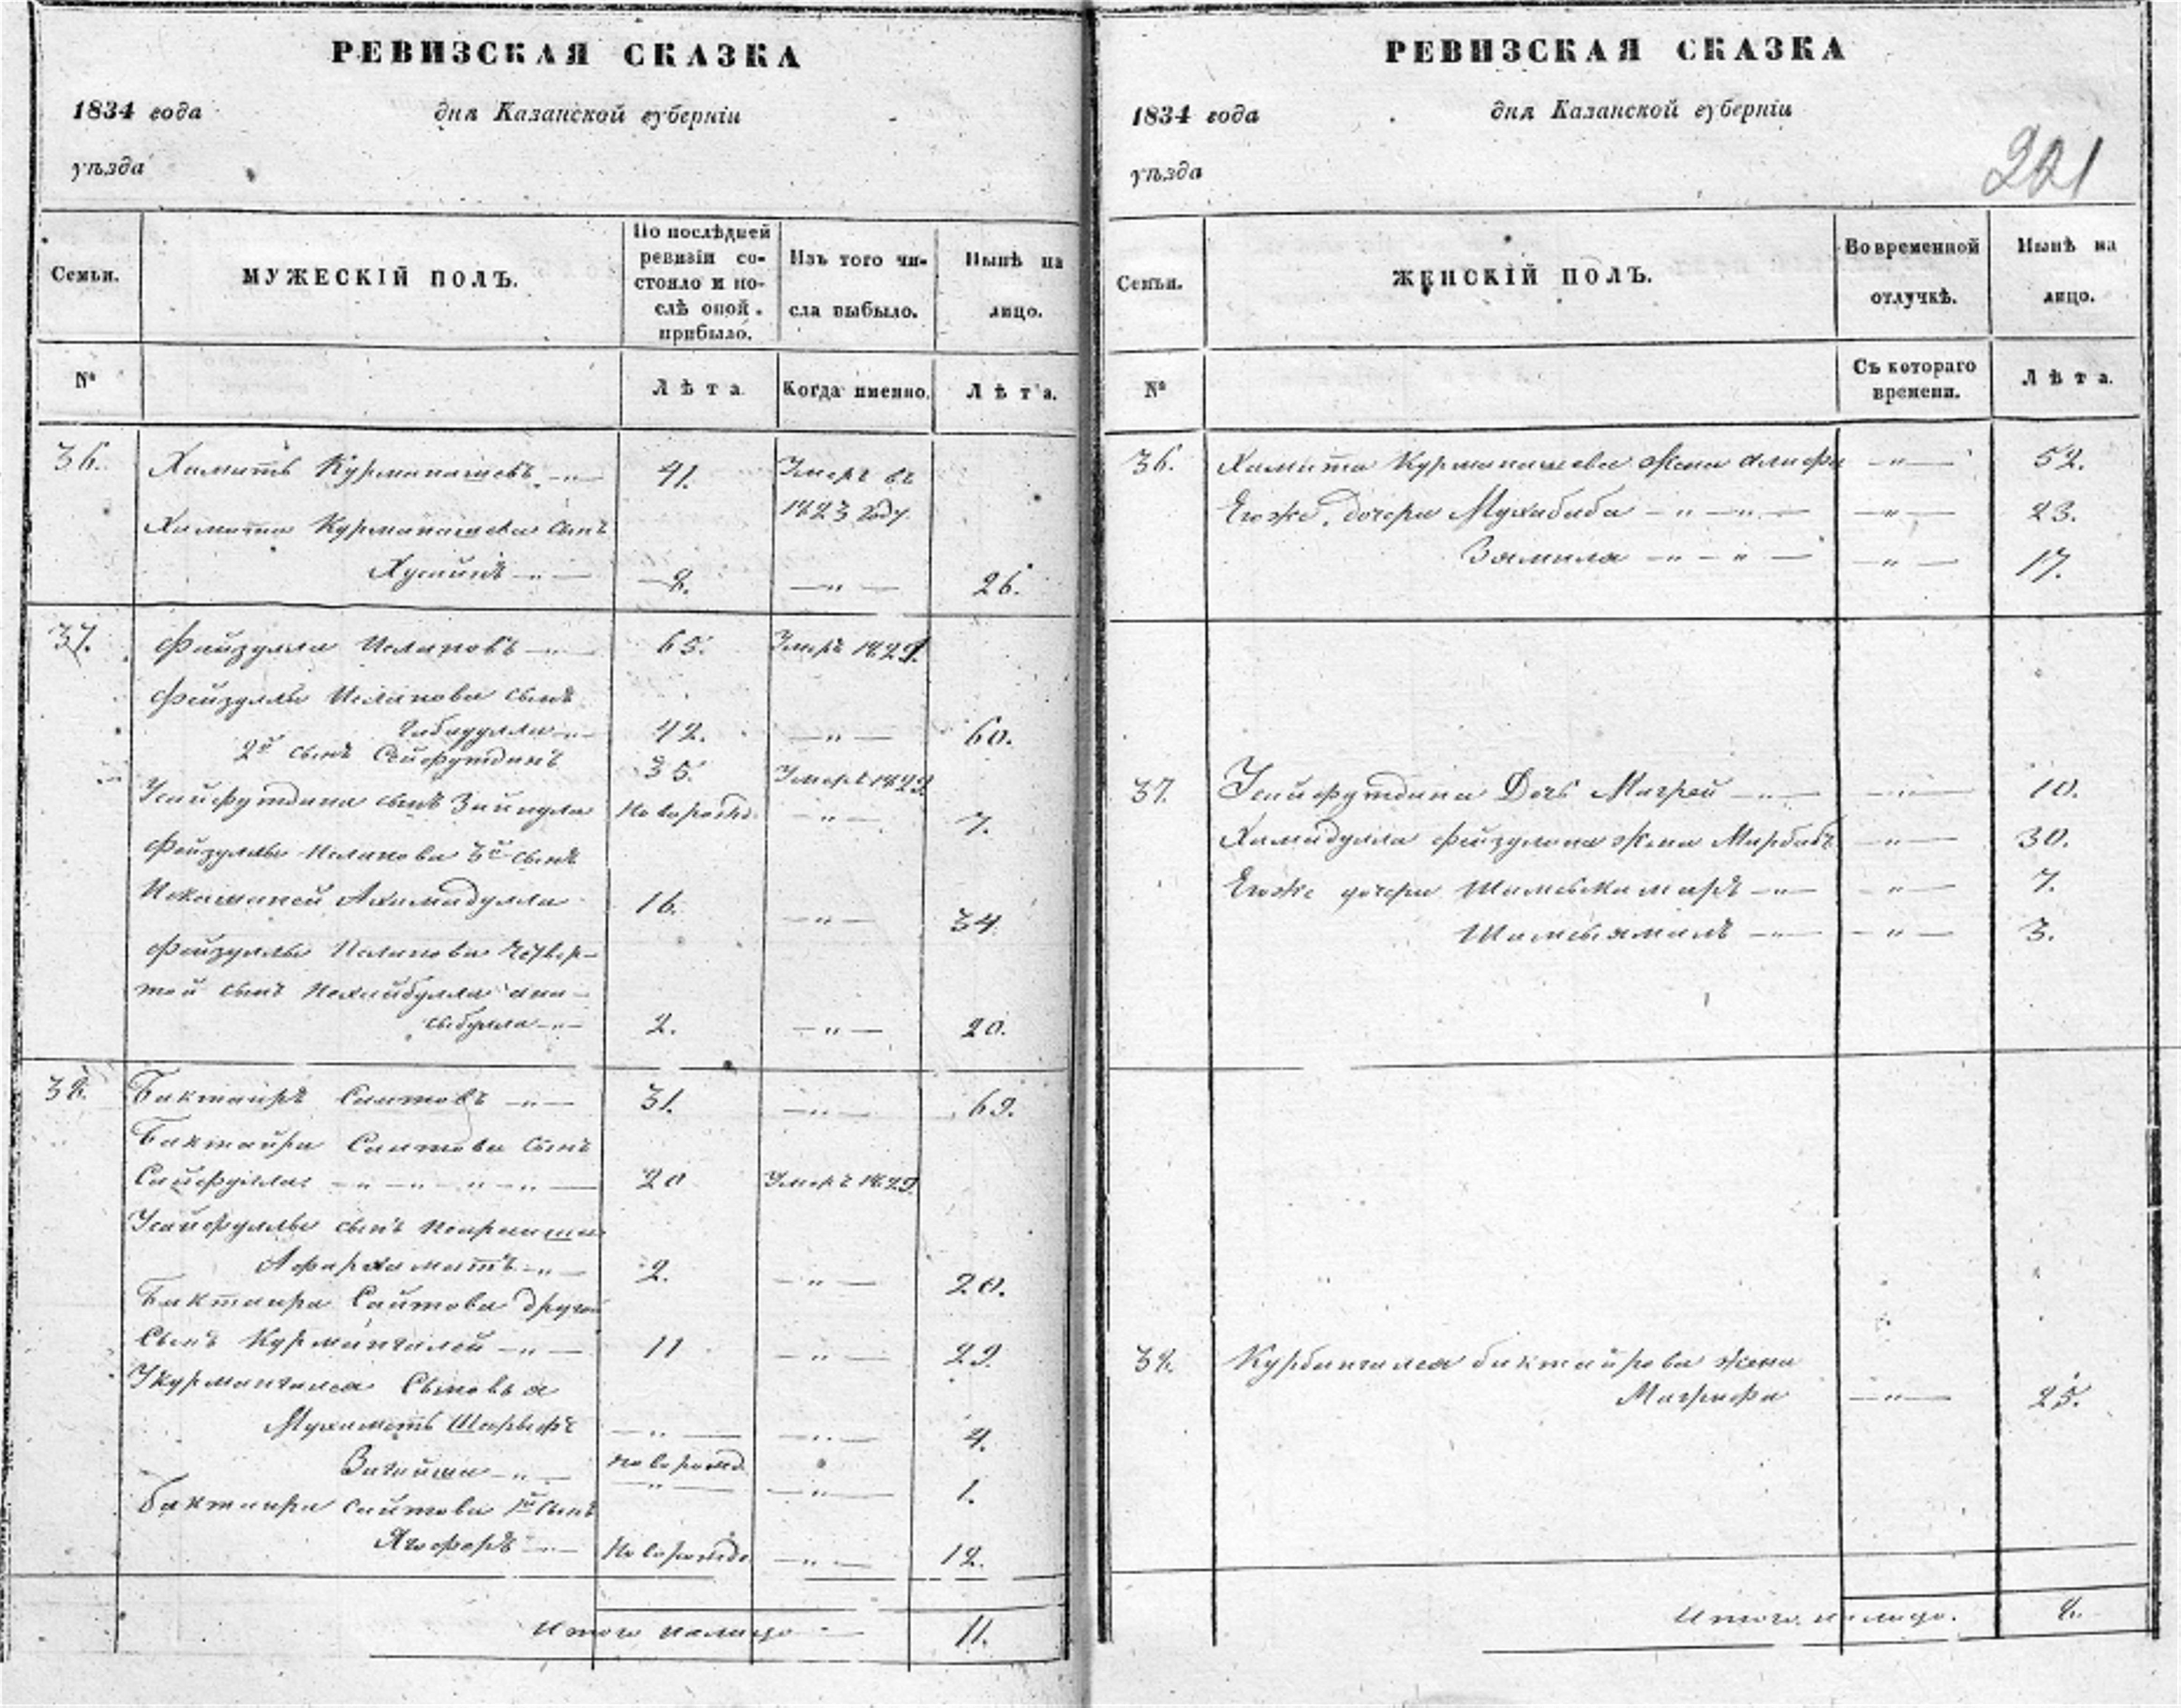 РЕВИЗСКАЯ СКАЗКА
1834 года дня Казанской губерніи
уѣзда
Семьи. МУЖЕСКІЙ ПОЛЪ. По послѣдней ревизіи состояло и послѣ оной прибыло. Изъ того числа выбыло. Нынѣ на лицо.
№ Лѣта Когда именно. Лѣта.
36. Хамитъ Курманашевъ 41. Умеръ въ
1823 году
Хамита Курманашева сынъ
Хусаинъ 8. 26.
37. Файзулла Исляновъ 65. Умеръ 1829.
Файзуллы Ислянова сынъ
42. 60.
2й сынъ Сайфутдинъ 35. Умеръ 1829.
Усайфутдина сынъ Зайнулла Новорожд. 7.
Файзуллы Ислянова 3й сынъ
16. 34
Файзуллы Ислянова четвер-
той сынъ
2. 20.
38. Бактаиръ Саитовъ 31. 69.
Бактаира Саитова сынъ
Сайфулла 20 Умеръ 1829.
Усайфуллы сынъ
2. 20.
Бактаира Саитова другой
сынъ Курмангалей 11 29.
Укурмангалея сыновья
Мухаметъ Шарыфъ 4.
новорожд. 1.
Бактаира Саитова сынъ
Ягофоръ Новорожде 12.
Итого налицо 11.
РЕВИЗСКАЯ СКАЗКА
1834 года дня Казанской губерніи
221
уѣзда
Семьи. ЖЕНСКІЙ ПОЛЪ. Во временной отлучкѣ. Нынѣ на лицо.
№ Съ котораго времени. Лѣта.
36. Хамита Курманашева жена 52.
Егоже, дочери Мухабаба 23.
Замила 17.
37. Усайфутдина Дочь Магрей 10.
Хамидулла Файзулина жена 30.
Егоже дочери Шамськамаръ 7.
Шамсыямалъ 3.
38. Курбангалея бактаирова жена
Магрифа 25.
Итого налицо. 8.